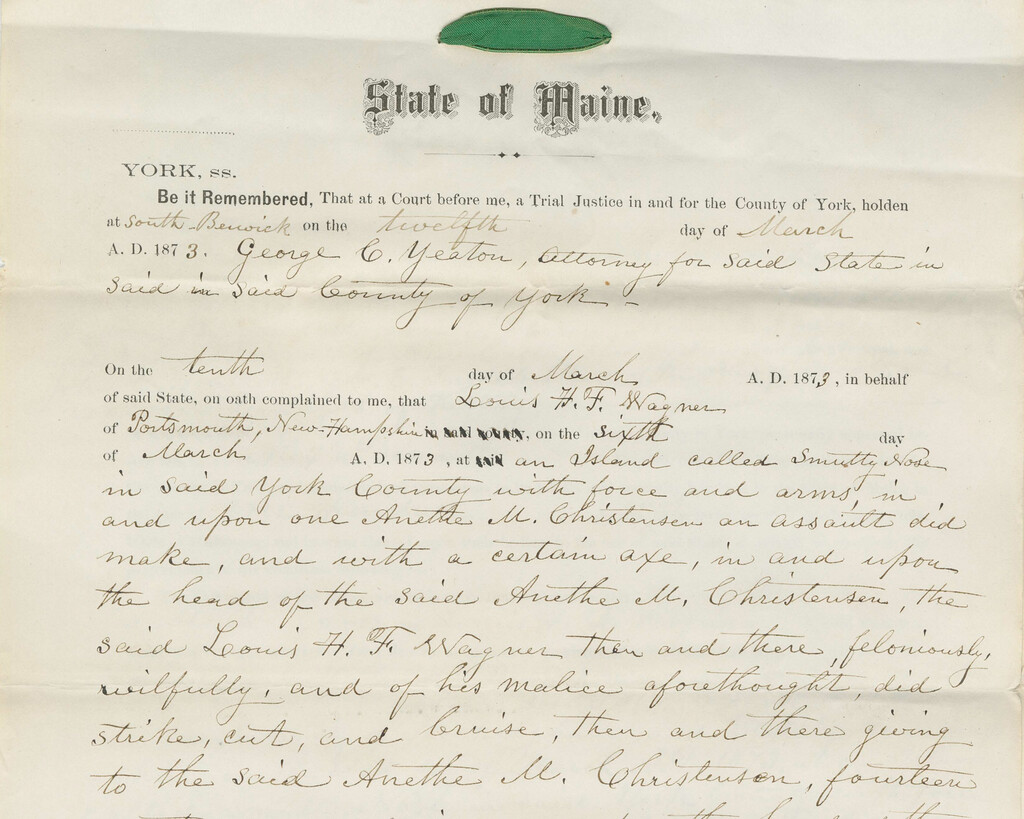 State of Maine.
YORK, ss.
Be it Remembered, That at a Court before me, a Trial Justice in and for the County of York, holden
at South-Berwick on the twelfth day of March
A. D. 1873. George C. Yeaton, Attorney for said State in
said in said County of York -
On the tenth day of March A. D. 1873, in behalf
of said State, on oath complained to me, that Louis H. F. Wagner
of Portsmouth, New-Hampshire in said county, on the sixth day
of March A. D. 1873, at said an Island called Smutty Nose
in said York County with force and arms, in
and upon one Anethe M. Christensen an assault did
make, and with a certain axe, in and upon
the head of the said Anethe M. Christensen, the
said Louis H. F. Wagner then and there, feloniously,
wilfully, and of his malice aforethought, did
strike, cut, and bruise, then and there giving
to the said Anethe M. Christensen, fourteen